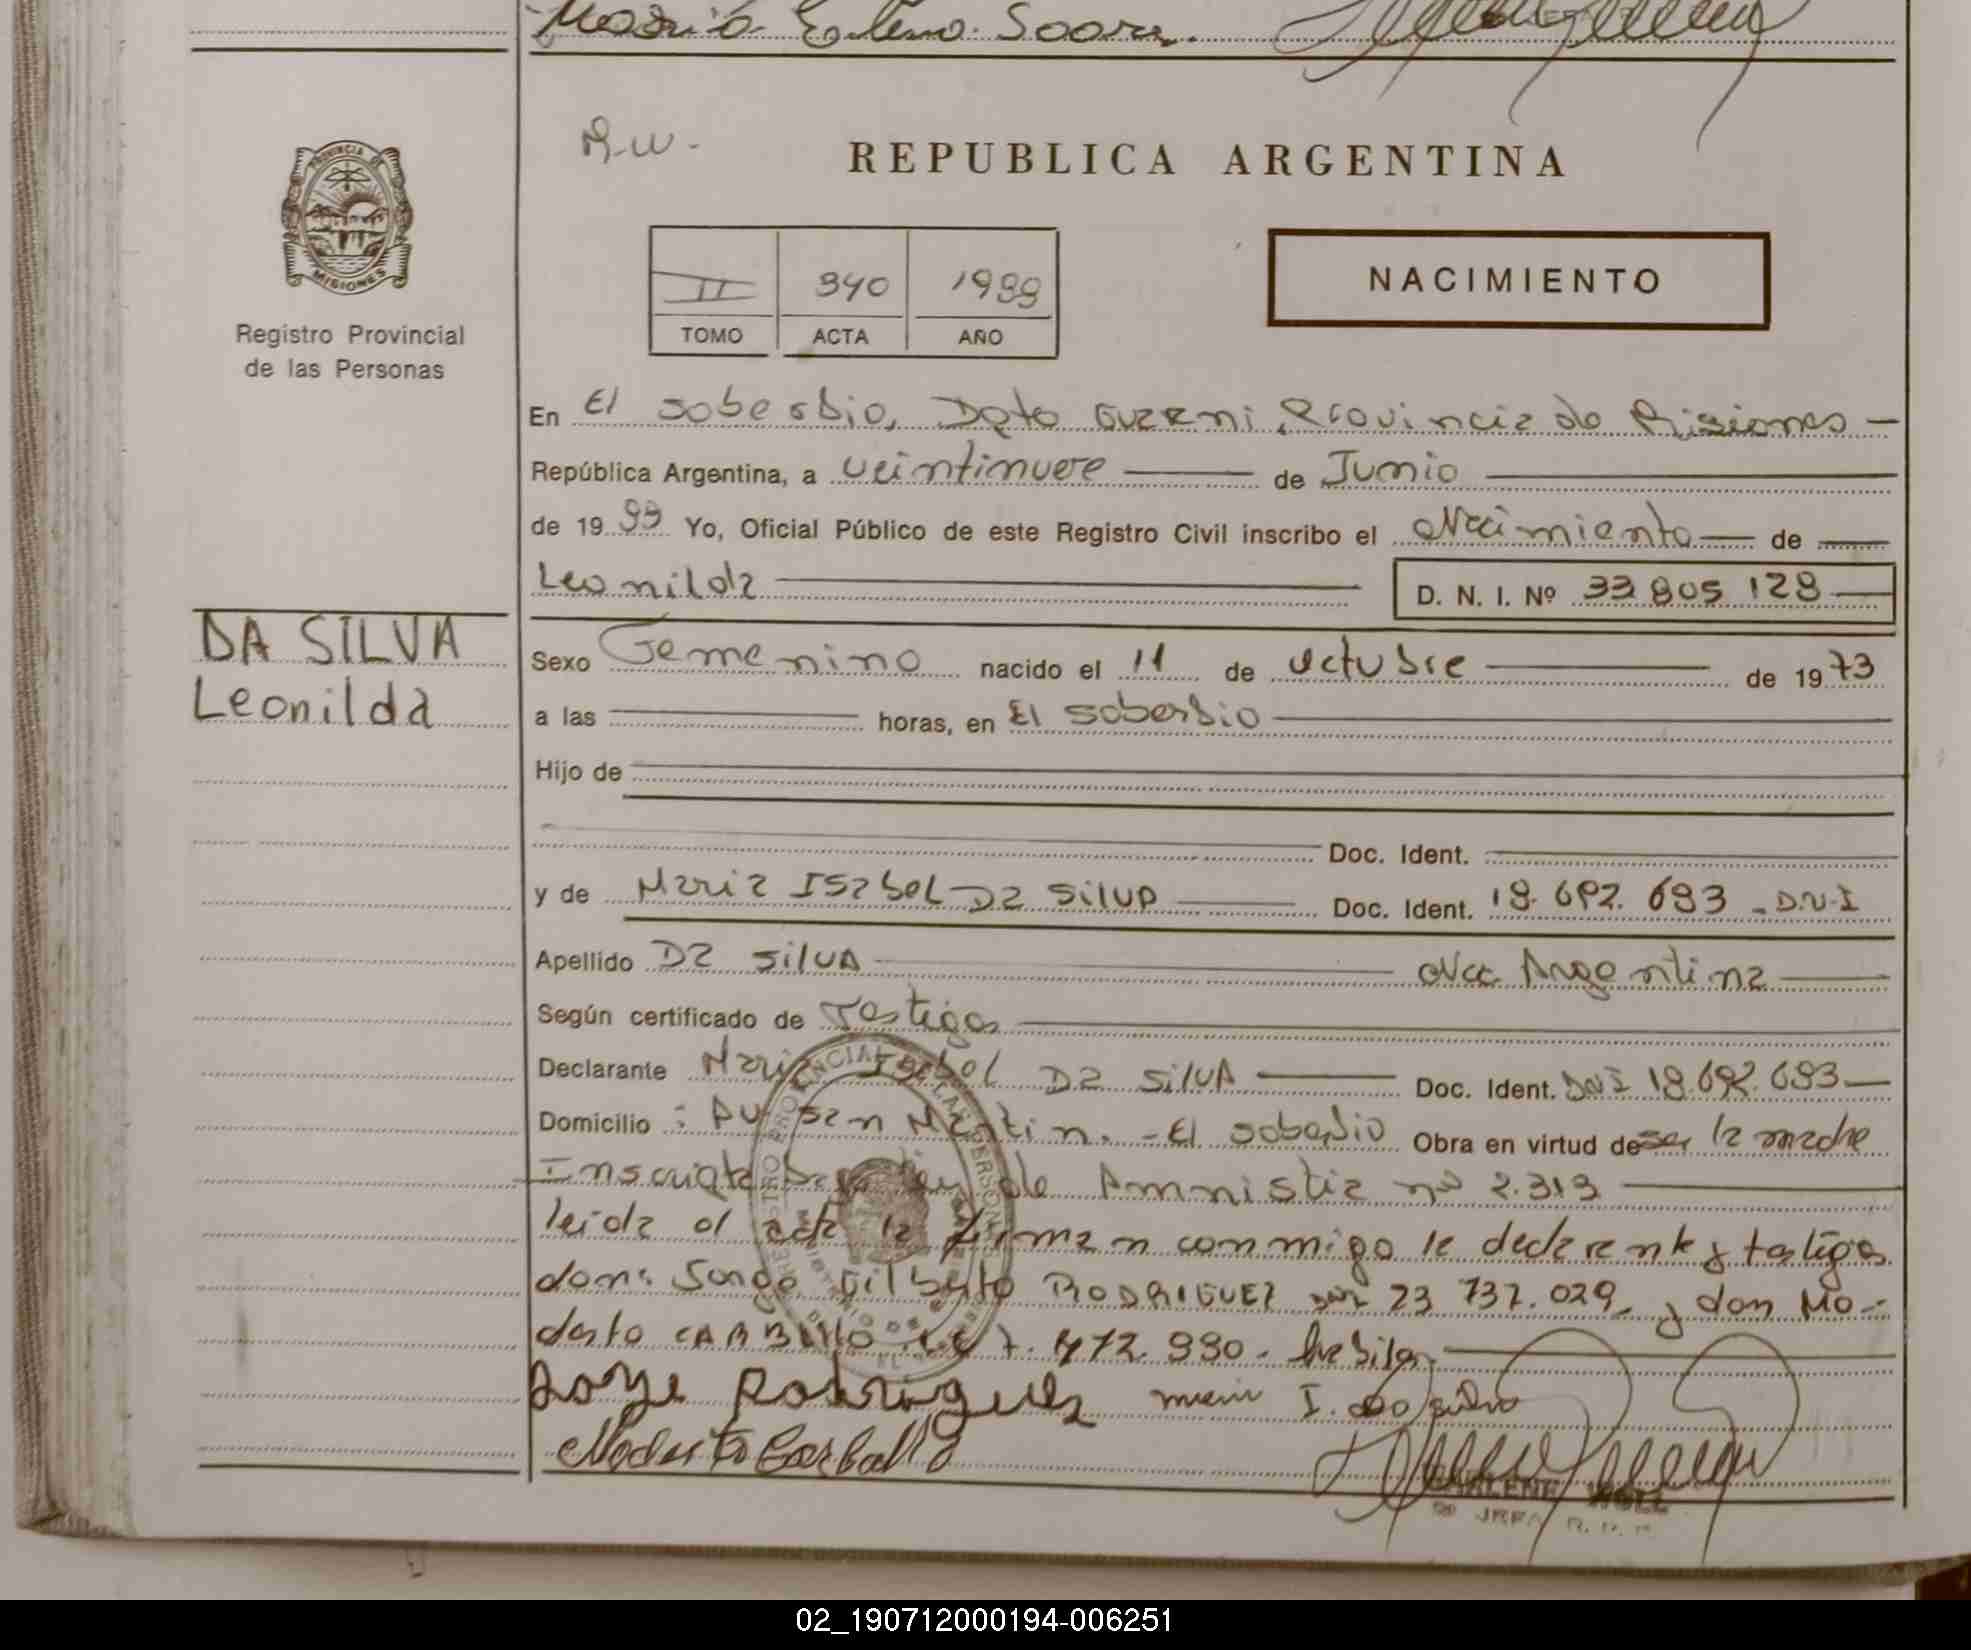 Maria Elena Soars.
PROVINCIA DE
MISIONES
Registro Provincial
de las Personas
R.W.
REPUBLICA ARGENTINA
II 340 1999
TOMO ACTA AÑO
NACIMIENTO
En El soberbio, Dpto Guarni, Provincia de Misiones —
República Argentina, a veintinueve — de Junio —
de 1999 Yo, Oficial Público de este Registro Civil inscribo el Nacimiento — de —
Leonilda — D. N. I. Nº 33 805 128 —
DA SILVA
Leonilda
Sexo Femenino nacido el 11 de octubre — de 1973
a las — horas, en El soberbio —
Hijo de —
Doc. Ident. —
y de Maria Isabel Da Silva — Doc. Ident. 18.692.693 - D.N.I
Apellido Da Silva — Nac Argentina —
Según certificado de Testigos —
Declarante Maria Isabel Da Silva — Doc. Ident. DNI 18.692.693 —
Domicilio : Av San Martin. - El soberbio Obra en virtud de ser la madre
Inscripta Ley de Amnistia nº 2.313 —
leida el acta la firman conmigo la declarante y testigos
don: Jorge Gilberto RODRIGUEZ DNI 23 737.029 y don Mo-
desto CARBALLO 7.472.990. habiles. —
Jorge Rodriguez Maria I. da silva
Modesto Carballo
MARLENE WOLL
JEFA R.P.P.
02_190712000194-006251